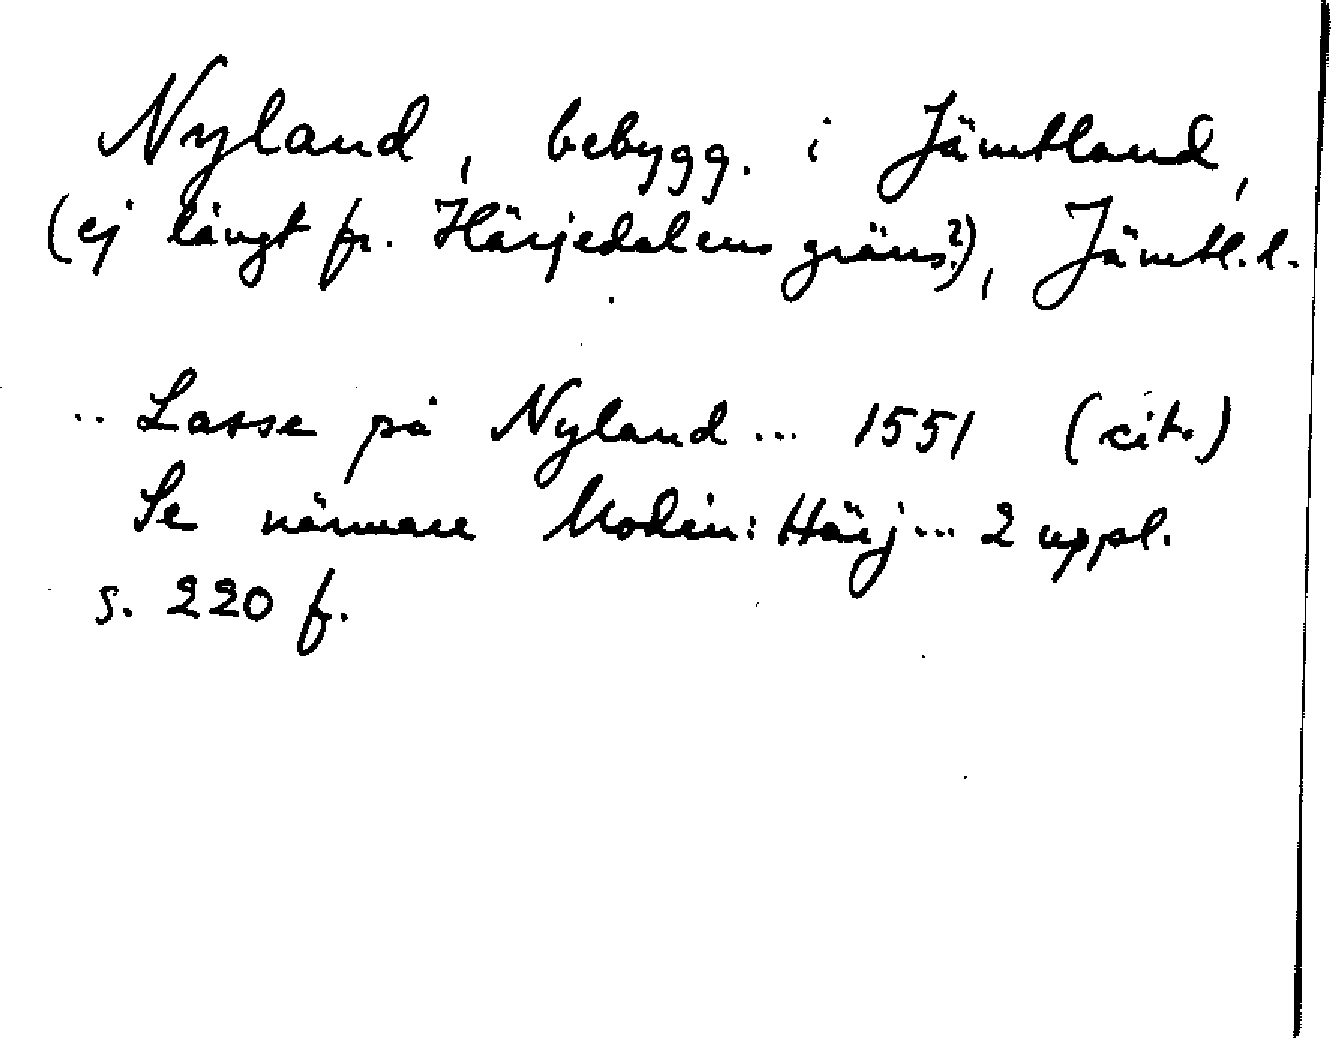 Nyland, bebygg. i Jämtland,
(ej långt fr. Härjedalens gräns?), Jämtl. l.
.. Lasse på Nyland ... 1551 (cit.)
Se närmare Modin: Härj... 2 uppl.
s. 220 f.